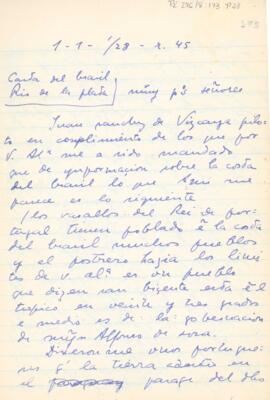 1-1-1/28-R.45
Costa del brasil
Rio de la plata muy pºs señores
Juan sanchez de Vizcaya pilo-
to en complimiento de los que por
V. Alª me a sido mandado
que de ynformacion sobre la costa
del brasil lo que a mi me
parece es lo siguiente
los vasallos del Rei de por-
tugal tienen poblado ē la costa
del brasil muchos pueblos
y el postrero hazia los limi-
tes de v. alª es un pueblo
que dizen san bizente esta ē el
tropico en veinte y tres grados
e medio es de la gobernacion
de min Alfonso de sosa.
Dixeron me unos portugue-
ses q la tierra adentro en
el parage del dho